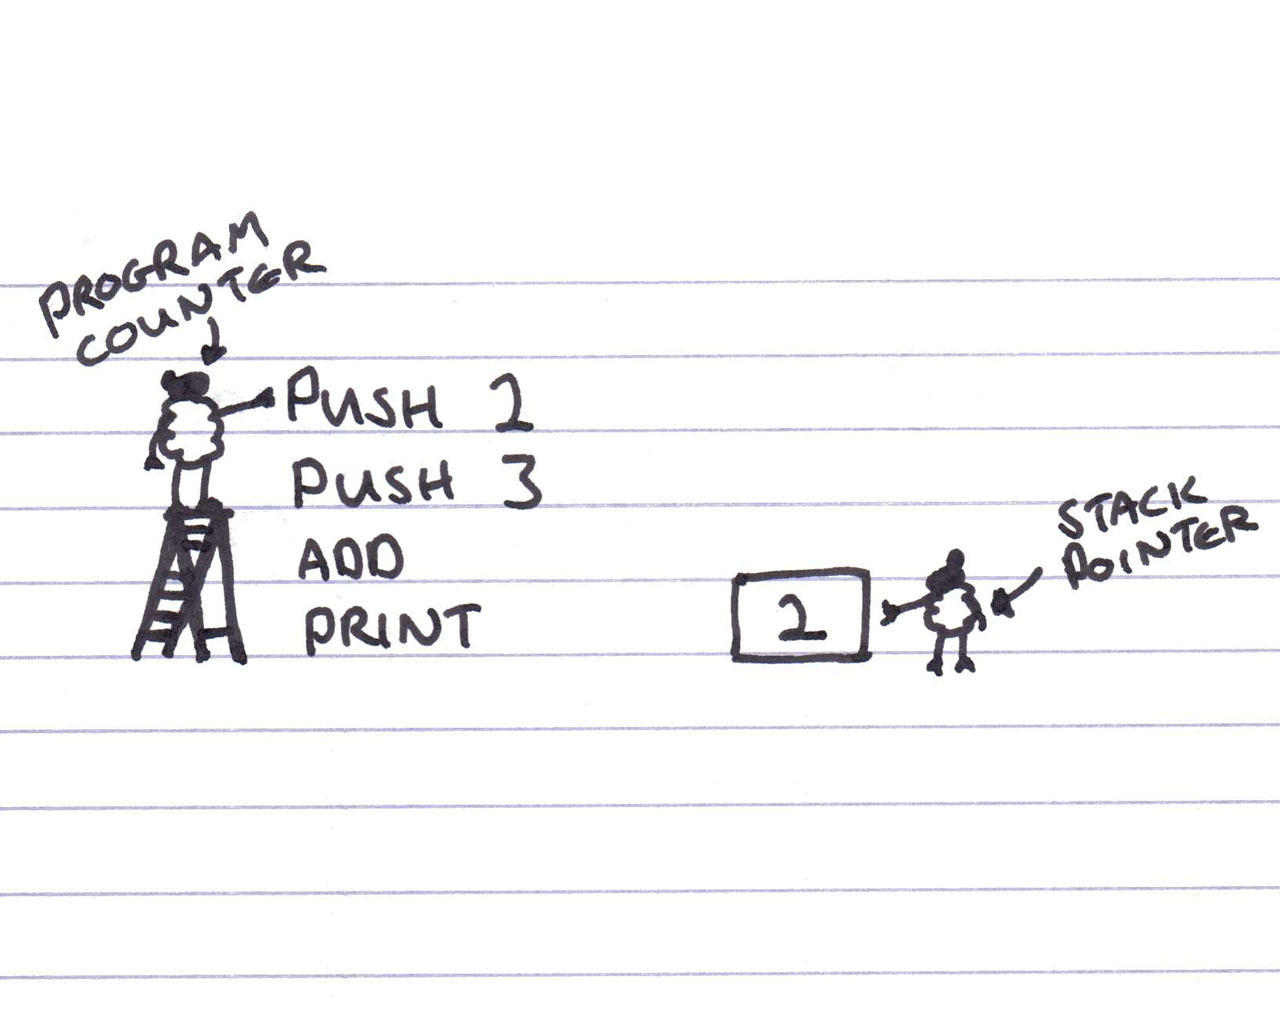 PROGRAM
COUNTER
PUSH 2
PUSH 3
ADD
PRINT
2
STACK
POINTER